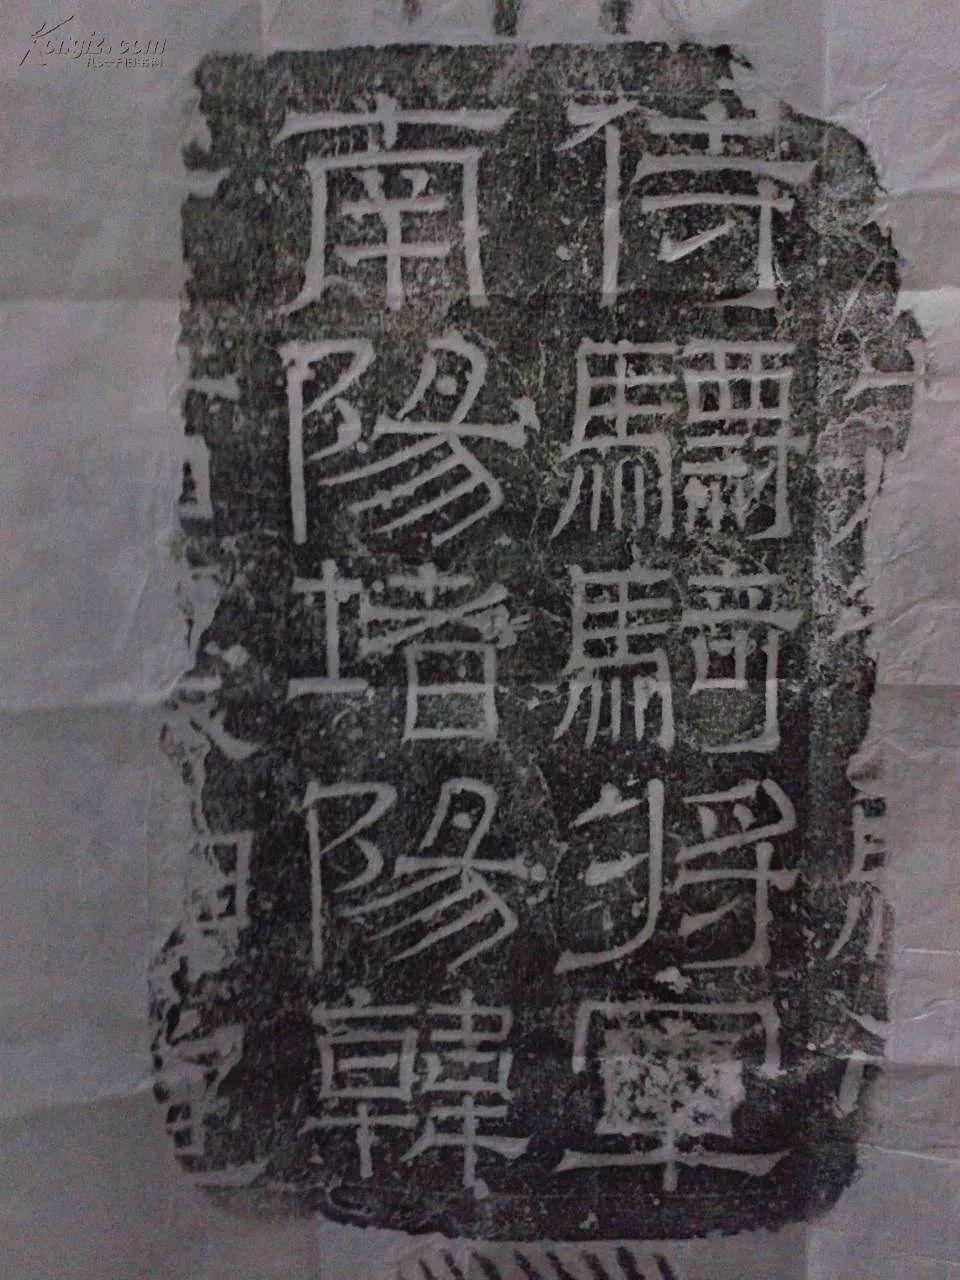 侍驃騎將軍
南陽堵陽韓
Kongfz.com
孔夫子旧书网